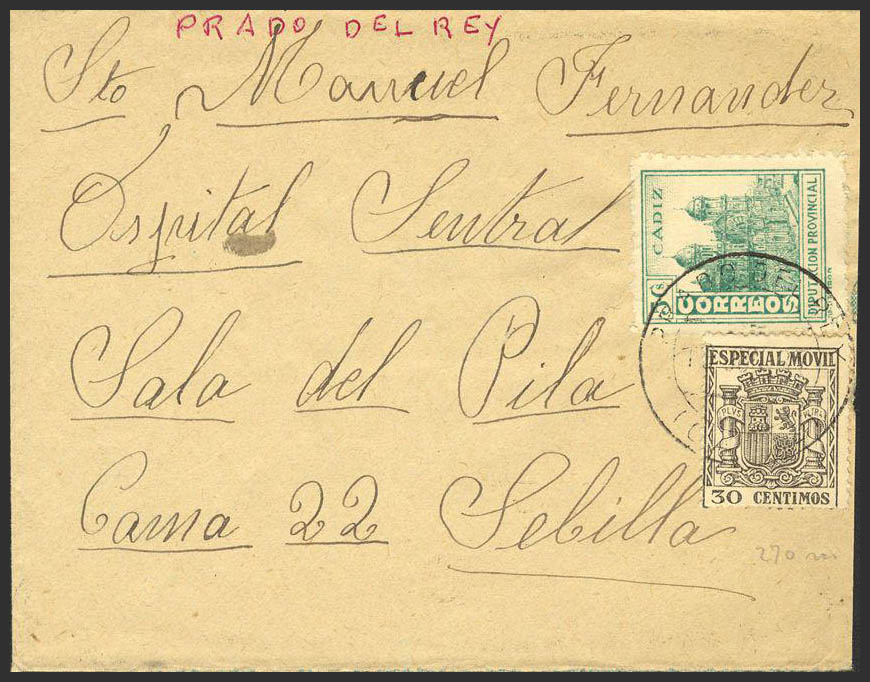 PRADO DEL REY
Sto Manuel Fernandez
Ospital Sentral
CADIZ
CORREOS
DIPUTACION PROVINCIAL
PRADO DEL REY
ESPECIAL MOVIL
PLUS
30 CENTIMOS
Sala del Pila
Cama 22 Sebilla